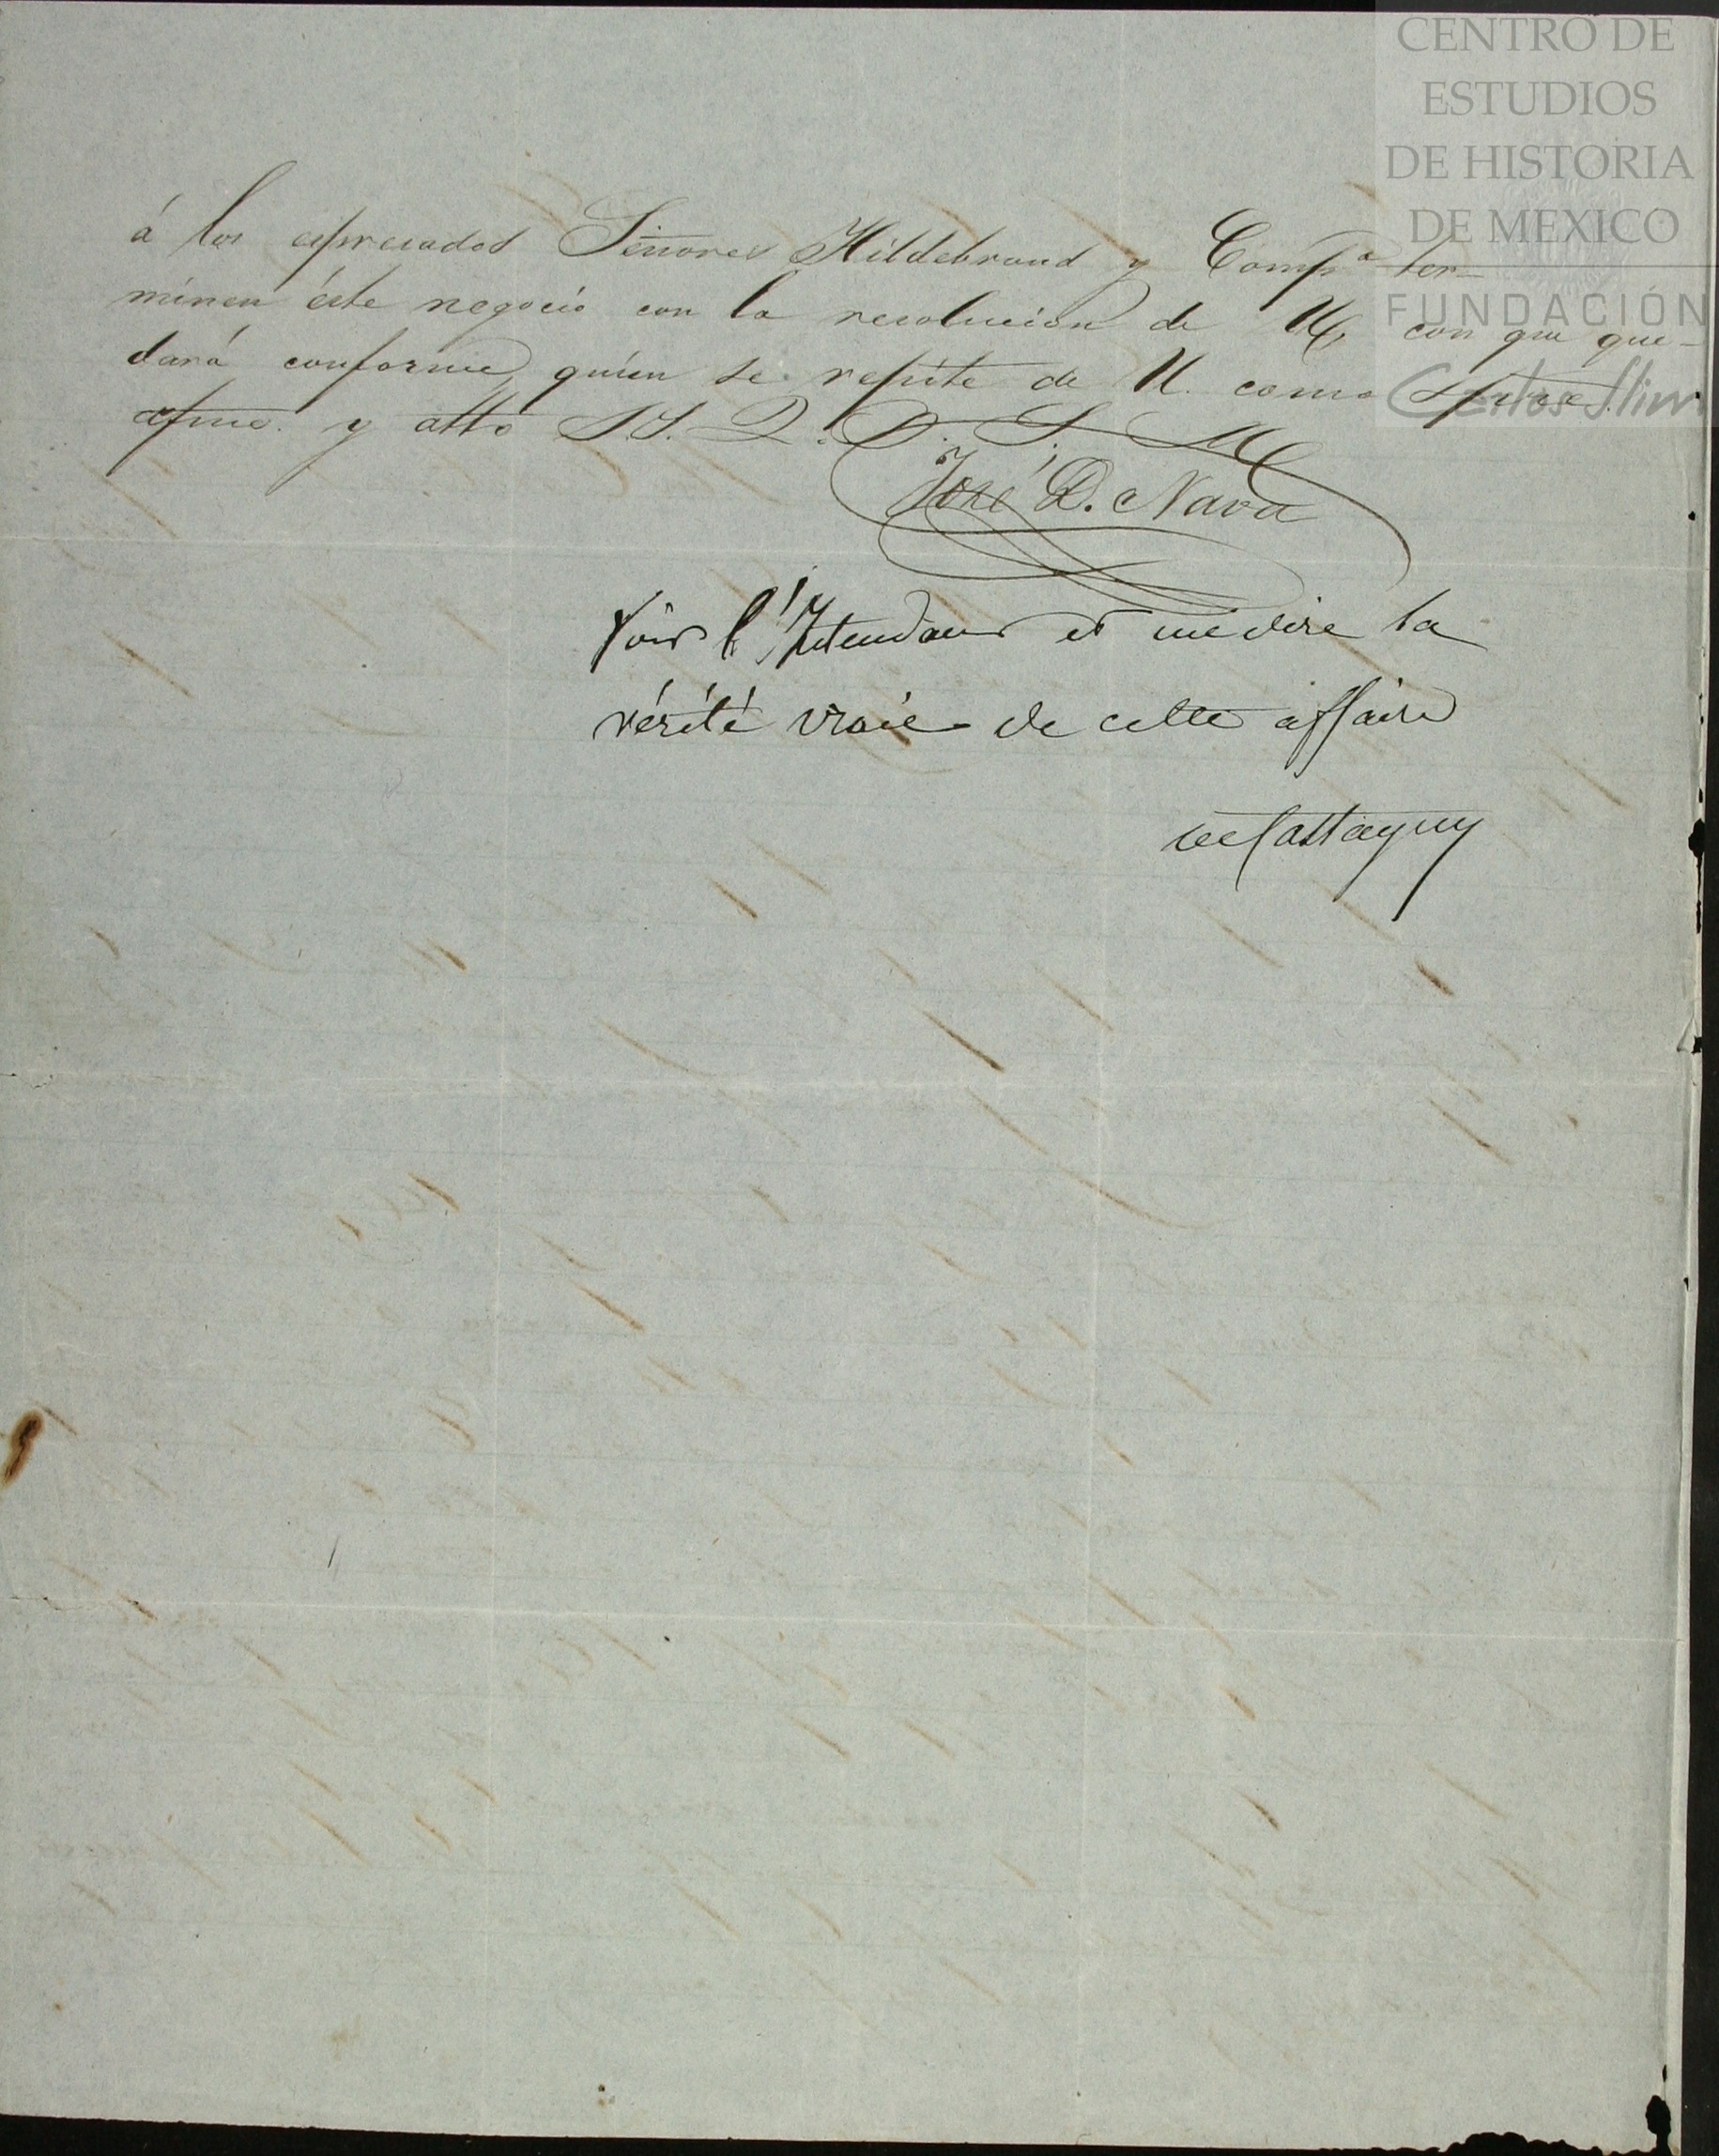 CENTRO DE
ESTUDIOS
DE HISTORIA
DE MEXICO
FUNDACIÓN
Carlos Slim
á los espresados Señores Hildebrand y Compª ter-
minen éste negocio con la resolucion de U. con que que-
dará conforme, quien se repite de U. como siempre
afmo. y atto S.S. Q. B. S. M.
José D. Nava
Voir l'Intendant et me dire la
vérité vraie de cette affaire
de Castagny